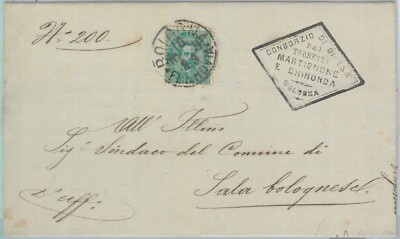 N.° 200.
BOLOGNA
CONSORZIO DI DIFESA
DEI
TORRENTI
MARTIGNONE
E GHIRONDA
BOLOGNA
All' Illmo
Sig. Sindaco del Comune di
Sala bolognese
D'uff.°